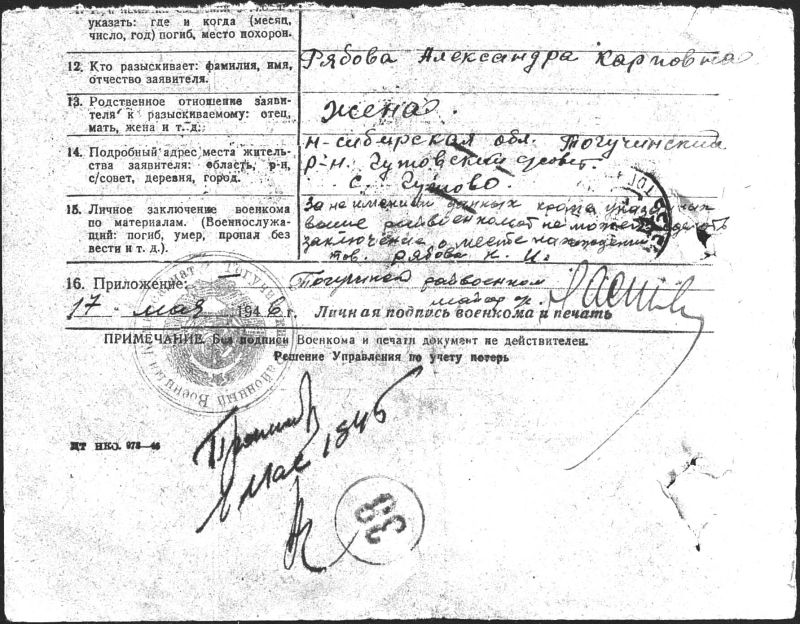 указать: где и когда (месяц,
число, год) погиб, место похорон.
12. Кто разыскивает: фамилия, имя, отчество заявителя.
Рябова Александра Карповна
13. Родственное отношение заяви-
теля к разыскиваемому: отец,
мать, жена и т. д.
Жена.
14. Подробный адрес места житель-
ства заявителя: область, р-н,
с/совет, деревня, город.
Н-сибирская обл. Тогучинский
р-н. Гутовский с/совет.
с. Гутово.
15. Личное заключение военкома
по материалам. (Военнослужа-
щий: погиб, умер, пропал без
вести и т. д.).
За не имением данных кроме указанных
выше райвоенкомат не может дать
заключение о месте нахождении
тов. Рябова Н. И.
16. Приложение:
Тогучинский райвоенком
майор
17 мая 1946 г. Личная подпись военкома и печать
ПРИМЕЧАНИЕ. Без подписи Военкома и печати документ не действителен.
Решение Управления по учету потерь
Районный Военный
мае 1945
Цт НКО. 973—46
38